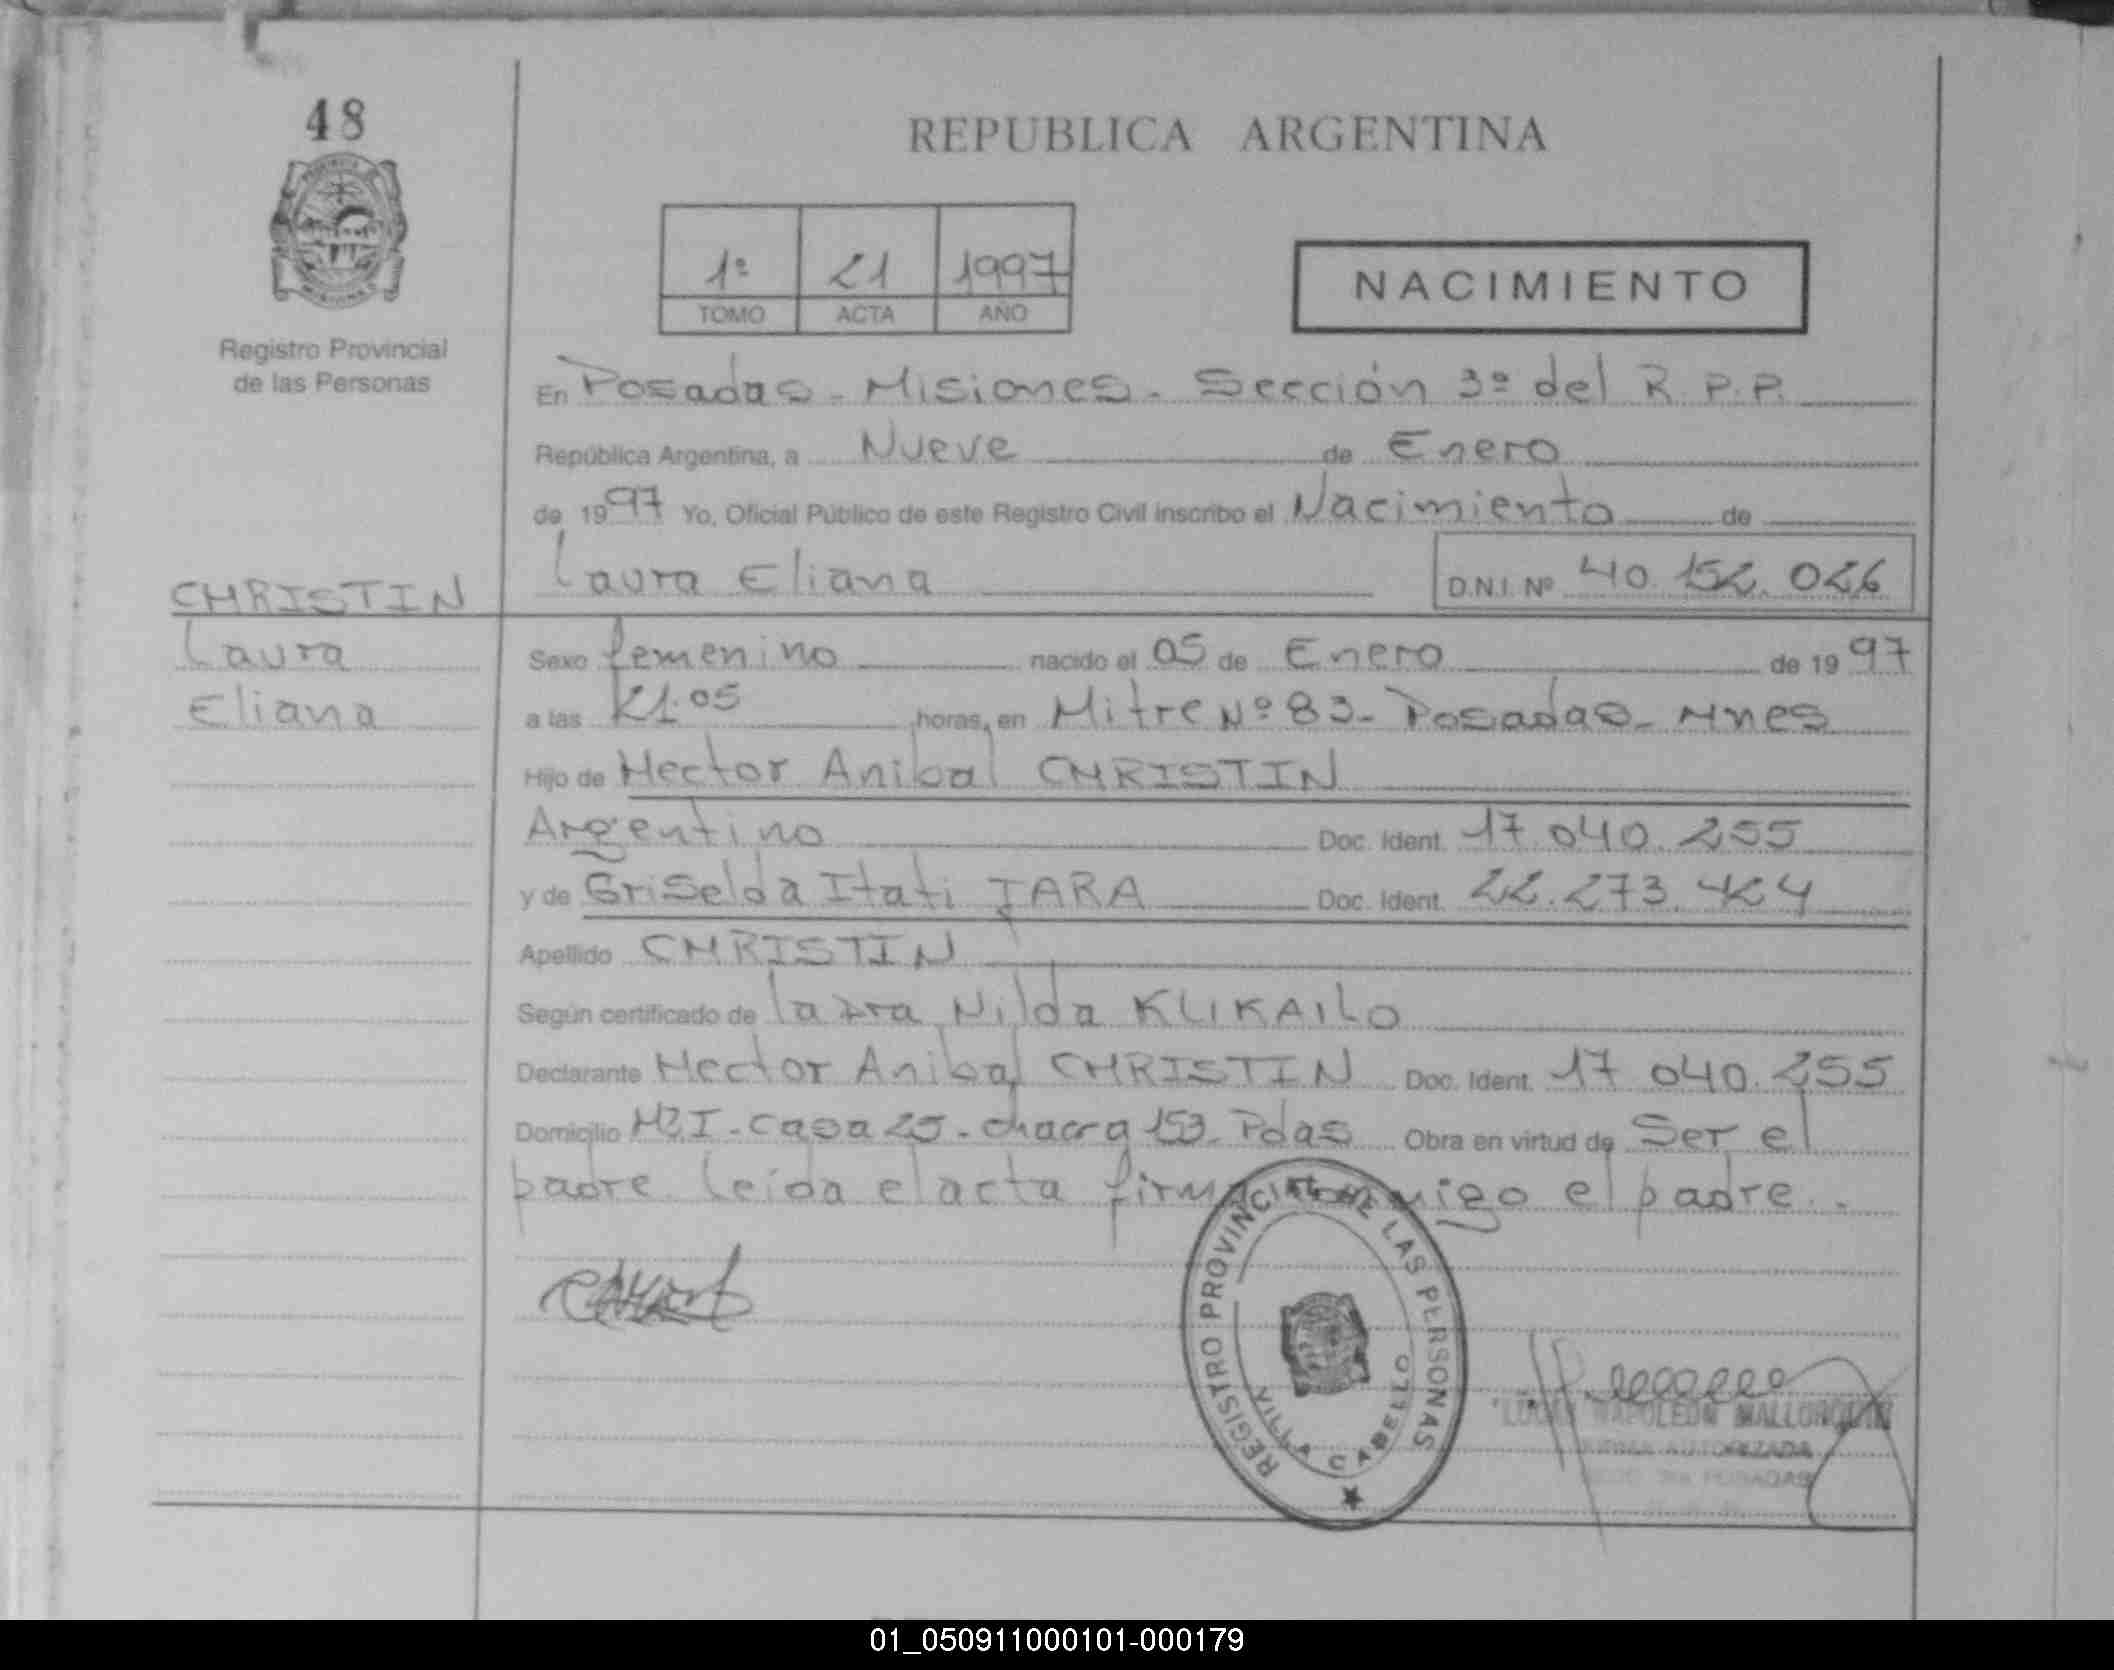 48
REPUBLICA ARGENTINA
1º 21 1997
TOMO ACTA AÑO
NACIMIENTO
Registro Provincial
de las Personas
En Posadas - Misiones - Sección 3º del R.P.P.
República Argentina, a Nueve de Enero
de 1997 Yo, Oficial Público de este Registro Civil inscribo el Nacimiento de
Laura Eliana D.N.I. Nº 40.152.026
CHRISTIN
Laura
Eliana
Sexo femenino nacido el 05 de Enero de 1997
a las 21.05 horas, en Mitre Nº 83 - Posadas - Mnes
Hijo de Hector Anibal CHRISTIN
Argentino Doc. Ident. 17.040.255
y de Griselda Itati JARA Doc. Ident. 22.273.424
Apellido CHRISTIN
Según certificado de Laura Nilda KLIKAILO
Declarante Hector Anibal CHRISTIN Doc. Ident. 17.040.255
Domicilio MZ I - Casa 25 - chacra 153 - Pdas Obra en virtud de Ser el
padre. Leida el acta firma conmigo el padre.
REGISTRO PROVINCIAL DE LAS PERSONAS
VILLA CABELLO
LUCAS NAPOLEON MALLORQUIN
FIRMA AUTORIZADA
POSADAS
01_050911000101-000179